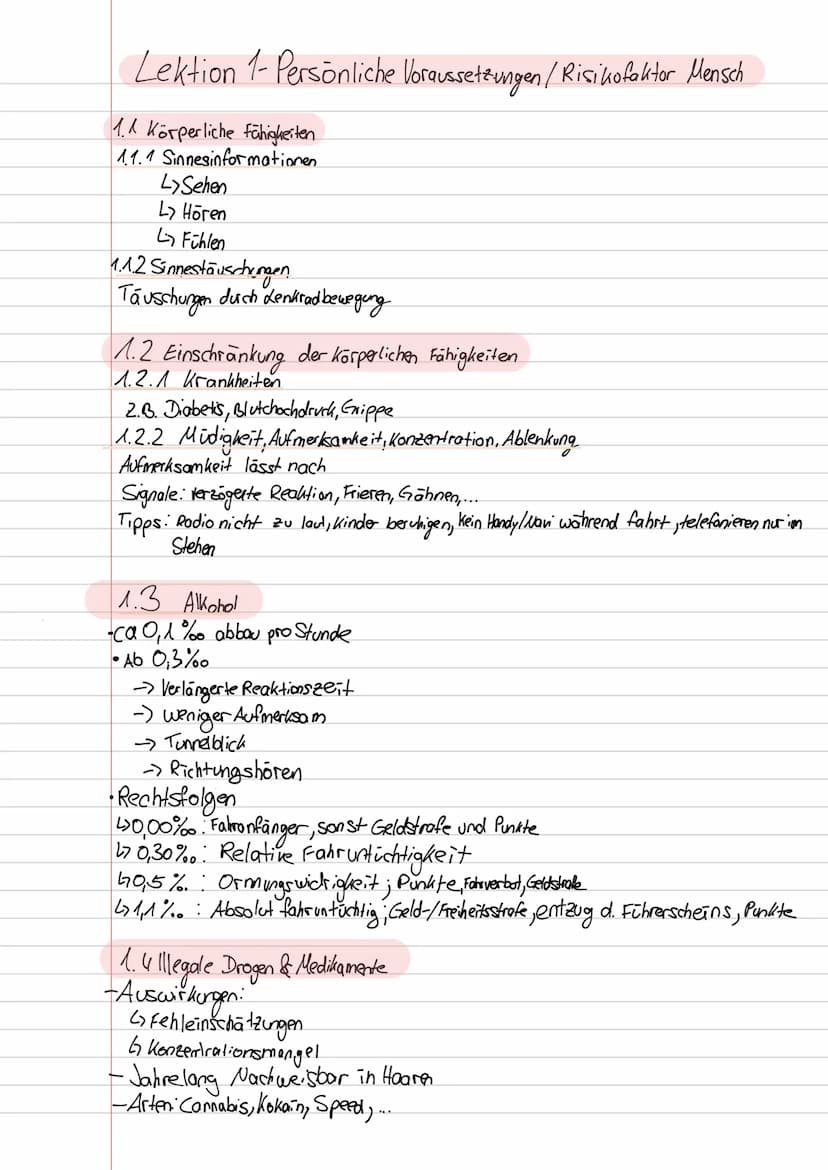 Lektion 1- Persönliche Voraussetzungen / Risikofaktor Mensch
1.1 Körperliche Fähigkeiten
1.1.1 Sinnesinformationen
↳ Sehen
↳ Hören
↳ Fühlen
1.1.2 Sinnestäuschungen
Täuschungen duch Lenkradbewegung
1.2 Einschränkung der körperlichen Fähigkeiten
1.2.1 Krankheiten
z.B. Diabetis, Blutchochdruk, Grippe
1.2.2 Müdigkeit, Aufmerksamkeit, Konzentration, Ablenkung
Aufmerksamkeit lässt nach
Signale: verzögerte Reaktion, Frieren, Gähnen,...
Tipps: Radio nicht zu laut, kinder beruhigen, kein Handy/Navi während fahrt, telefonieren nur im
Stehen
1.3 Alkohol
-ca 0,1‰ abbau pro Stunde
• Ab 0,3‰
-> Verlängerte Reaktionszeit
-> weniger Aufmerksam
-> Tunnelblick
-> Richtungshören
• Rechtsfolgen
↳ 0,00‰: Fahranfänger, sonst Geldstrafe und Punkte
↳ 0,30‰: Relative Fahruntüchtigkeit
↳ 0,5‰: Ormungswidrigkeit; Punkte, Fahrverbot, Geldstrafe
↳ 1,1‰: Absolut fahruntüchtig; Geld-/Freiheitsstrafe, entzug d. Führerscheins, Punkte
1.4 Illegale Drogen & Medikamente
-Auswirkungen:
↳ Fehleinschätzungen
↳ Konzentrationsmangel
- Jahrelang Nachweisbar in Haaren
- Arten: Cannabis, Kokain, Speed, ...